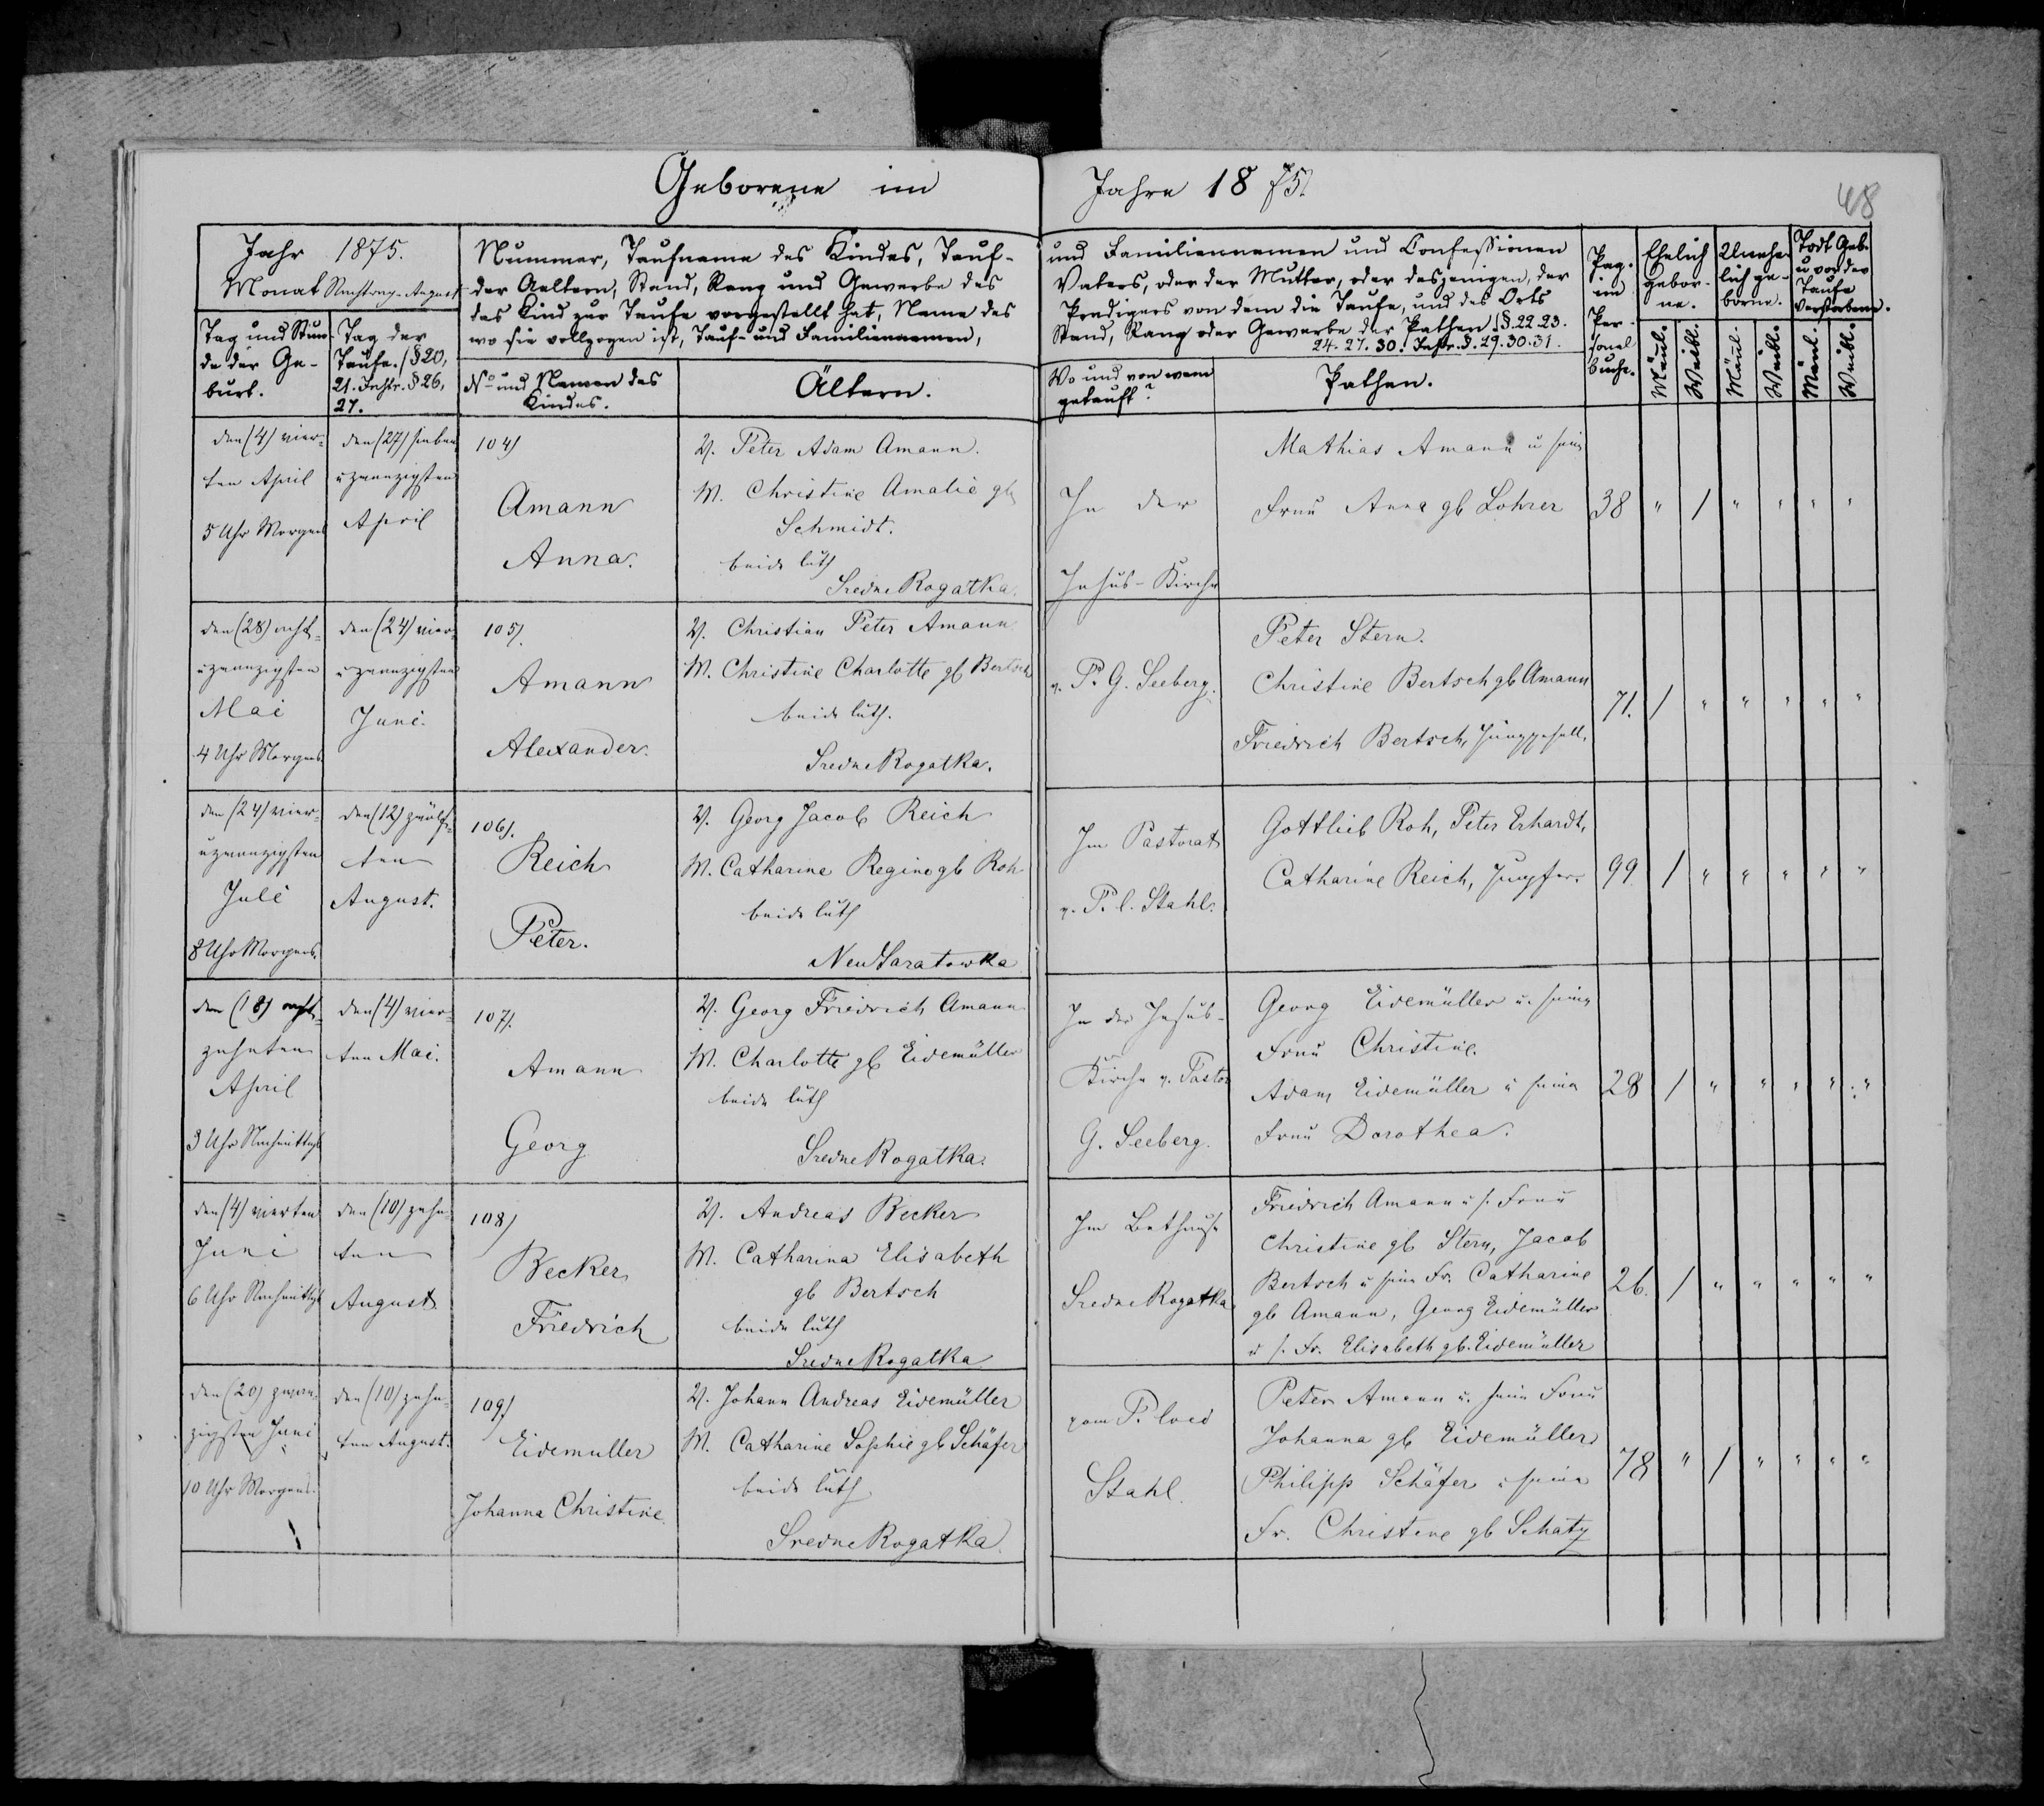 Geborene im Jahre 1875.
48
Jahr 1875.
Monat Nachtrag-August
Tag und Stun-
de der Ge-
burt.
Tag der
Taufe. (§20,
21. Instr. §26,
27.
Nummer, Taufname des Kindes, Tauf-
der Aeltern, Stand, Rang und Gewerbe des
das Kind zur Taufe vorgestellt hat, Name des
wo sie vollzogen ist, Tauf- und Familiennamen,
No und Namen des
Kindes.
Ältern.
und Familiennamen und Confessionen
Vaters, oder der Mutter, oder desjenigen, der
Predigers von dem die Taufe, und des Orts
Stand, Rang oder Gewerbe der Pathen. (§.22.23.
24. 27. 30. Instr. §. 29. 30. 31.
Wo und von wem
getauft?
Pathen.
Pag.
im
Per-
sonal
buche.
Ehelich
gebor-
ne.
Unehe-
lich ge-
borne.
Todt Geb.
u. vor der
Taufe
Verstorbene.
Mänl.
Weibl.
Mänl.
Weibl.
Mänl.
Weibl.
den (4) vier-
ten April
5 Uhr Morgens
den (27) sieben
u zwanzigsten
April
104)
Amann
Anna.
V. Peter Adam Amann.
M. Christine Amalie gb
Schmidt.
beide luth
Sredne Rogatka.
In der
Jesus-Kirche
Mathias Amann u seine
Frau Anna gb Lohrer
38 " / " " " "
den (28) acht-
u zwanzigsten
Mai
4 Uhr Morgens
den (24) vier-
u zwanzigsten
Juni.
105).
Amann
Alexander.
V. Christian Peter Amann
M. Christine Charlotte gb Bertsch
beide luth.
Sredne Rogatka.
v. P. G. Seeberg.
Peter Stern.
Christine Bertsch gb Amann
Friedrich Bertsch, Junggesell.
71. / " " " " "
den (24) vier-
u zwanzigsten
Juli
8 Uhr Morgens.
den (12) zwölf-
ten
August.
106).
Reich
Peter.
V. Georg Jacob Reich
M. Catharine Regine gb Roh
beide luth
Neu Saratowka
Im Pastorat
v. P. l. Stahl.
Gottlieb Roh, Peter Erhardt,
Catharine Reich, Jungfer.
99 / " " " " "
den (18) acht-
zehnten
April
3 Uhr Nachmittgs
den (4) vier-
ten Mai.
107).
Amann
Georg
V. Georg Friedrich Amann
M. Charlotte gb Eidemüller
beide luth
Sredne Rogatka.
In der Jesus-
Kirche v. Pastor
G. Seeberg.
Georg Eidemüller u. seine
Frau Christine.
Adam Eidemüller u seine
Frau Dorothea.
28 / " " " " "
den (4) vierten
Juni
6 Uhr Nachmittgs
den (10) zehn-
ten
August
108)
Becker
Friedrich
V. Andreas Becker
M. Catharina Elisabeth
gb Bertsch
beide luth
Sredne Rogatka
Im Bethause
Sredne Rogatka
Friedrich Amann u s. Frau
Christine gb Stern, Jacob
Bertsch u seine Fr. Catharine
gb Amann, Georg Eidemüller
u s. Fr. Elisabeth gb. Eidemüller
26. / " " " " "
den (20) zwan-
zigsten Juni
10 Uhr Morgens.
den (10) zehn-
ten August.
109)
Eidemuller
Johanna Christine.
V. Johann Andreas Eidemüller
M. Catharine Sophie gb Schäfer
beide luth
Sredne Rogatka.
vom P.
Stahl.
Peter Amann u. seine Frau
Johanna gb Eidemüller
Philipp Schäfer u seine
Fr. Christine gb Schatz
78 " / " " " "